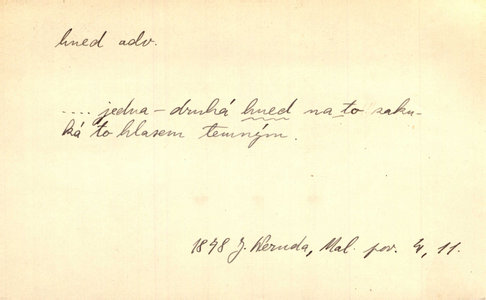 hned adv.
.... jedna – druhá hned na to zaku-
ká to hlasem temným.
1878 J. Neruda, Mal. pov. 4, 11.